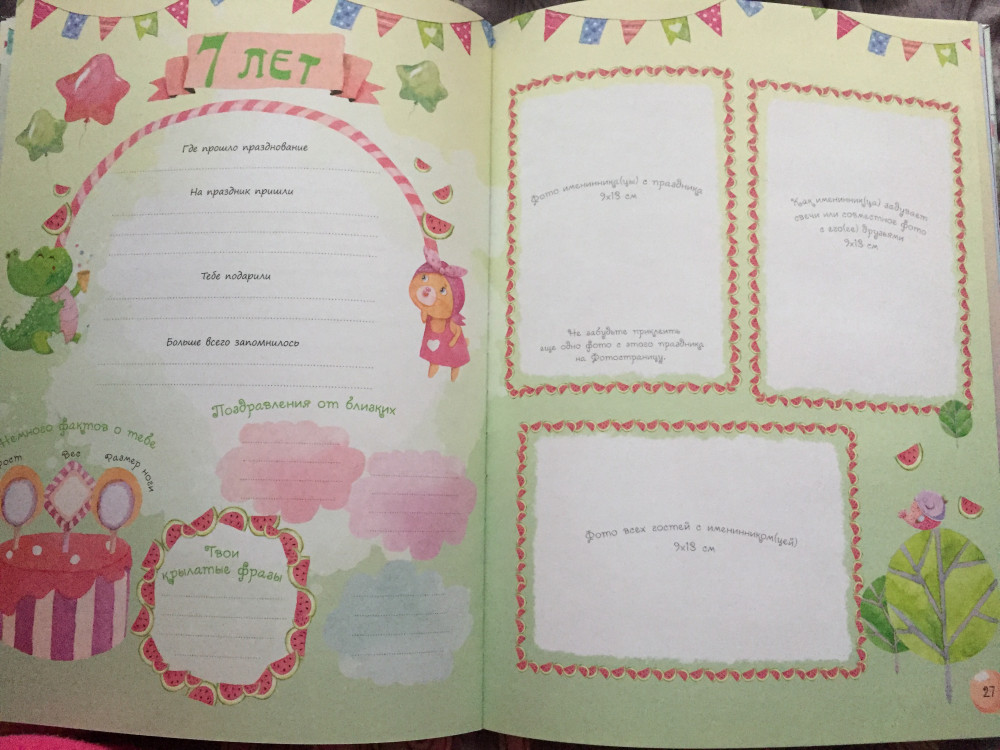 7 ЛЕТ
Где прошло празднование
На праздник пришли
Тебе подарили
Больше всего запомнилось
Поздравления от близких
Немного фактов о тебе
Рост
Вес
Размер ноги
Твои
крылатые фразы
Фото именинника(цы) с праздника
9х13 см
Не забудьте приклеить
еще одно фото с этого праздника
на Фотостраницу.
Как именинник(ца) задувает
свечи или совместное фото
с его(её) друзьями
9х13 см
Фото всех гостей с именинником(цей)
9х13 см
27